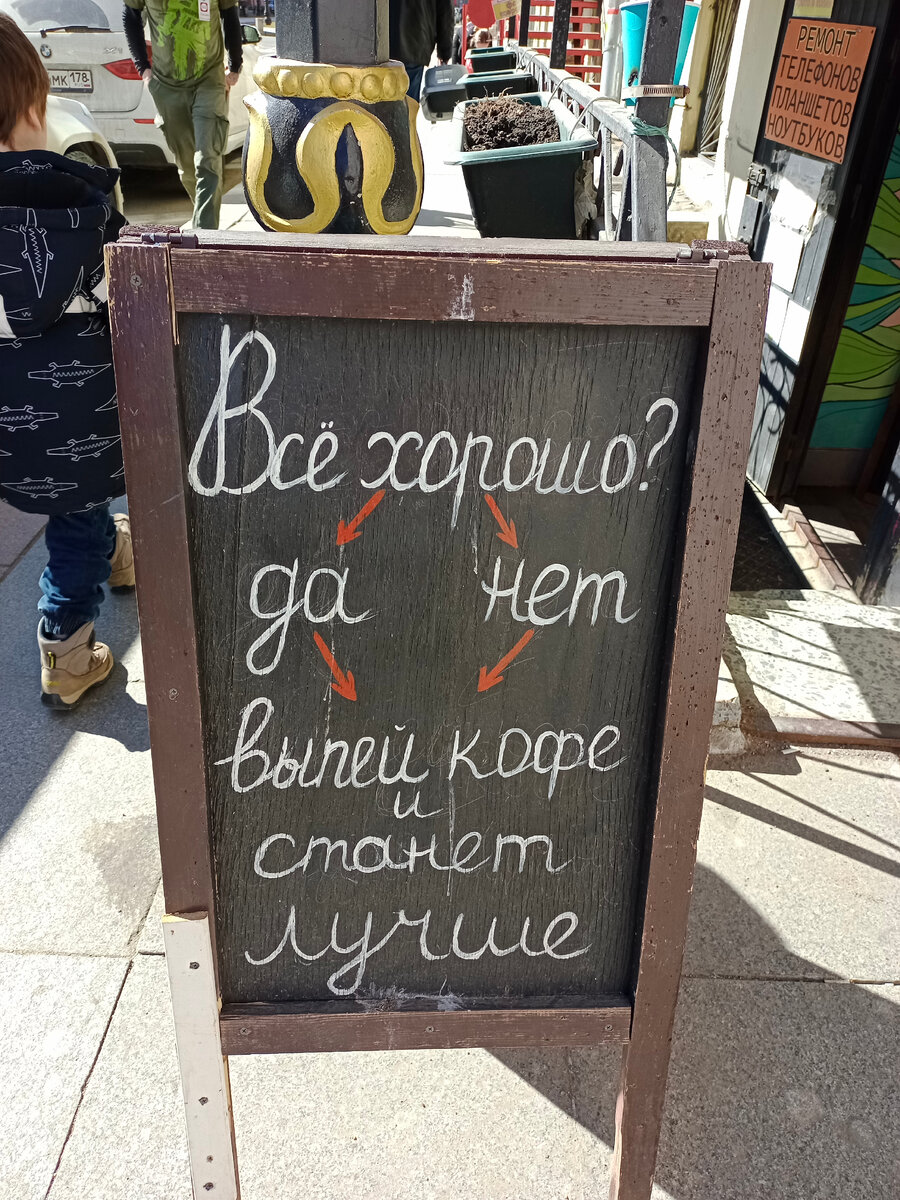 МК 178
РЕМОНТ
ТЕЛЕФОНОВ
ПЛАНШЕТОВ
НОУТБУКОВ
Всё хорошо?
да нет
выпей кофе
и
станет
лучше